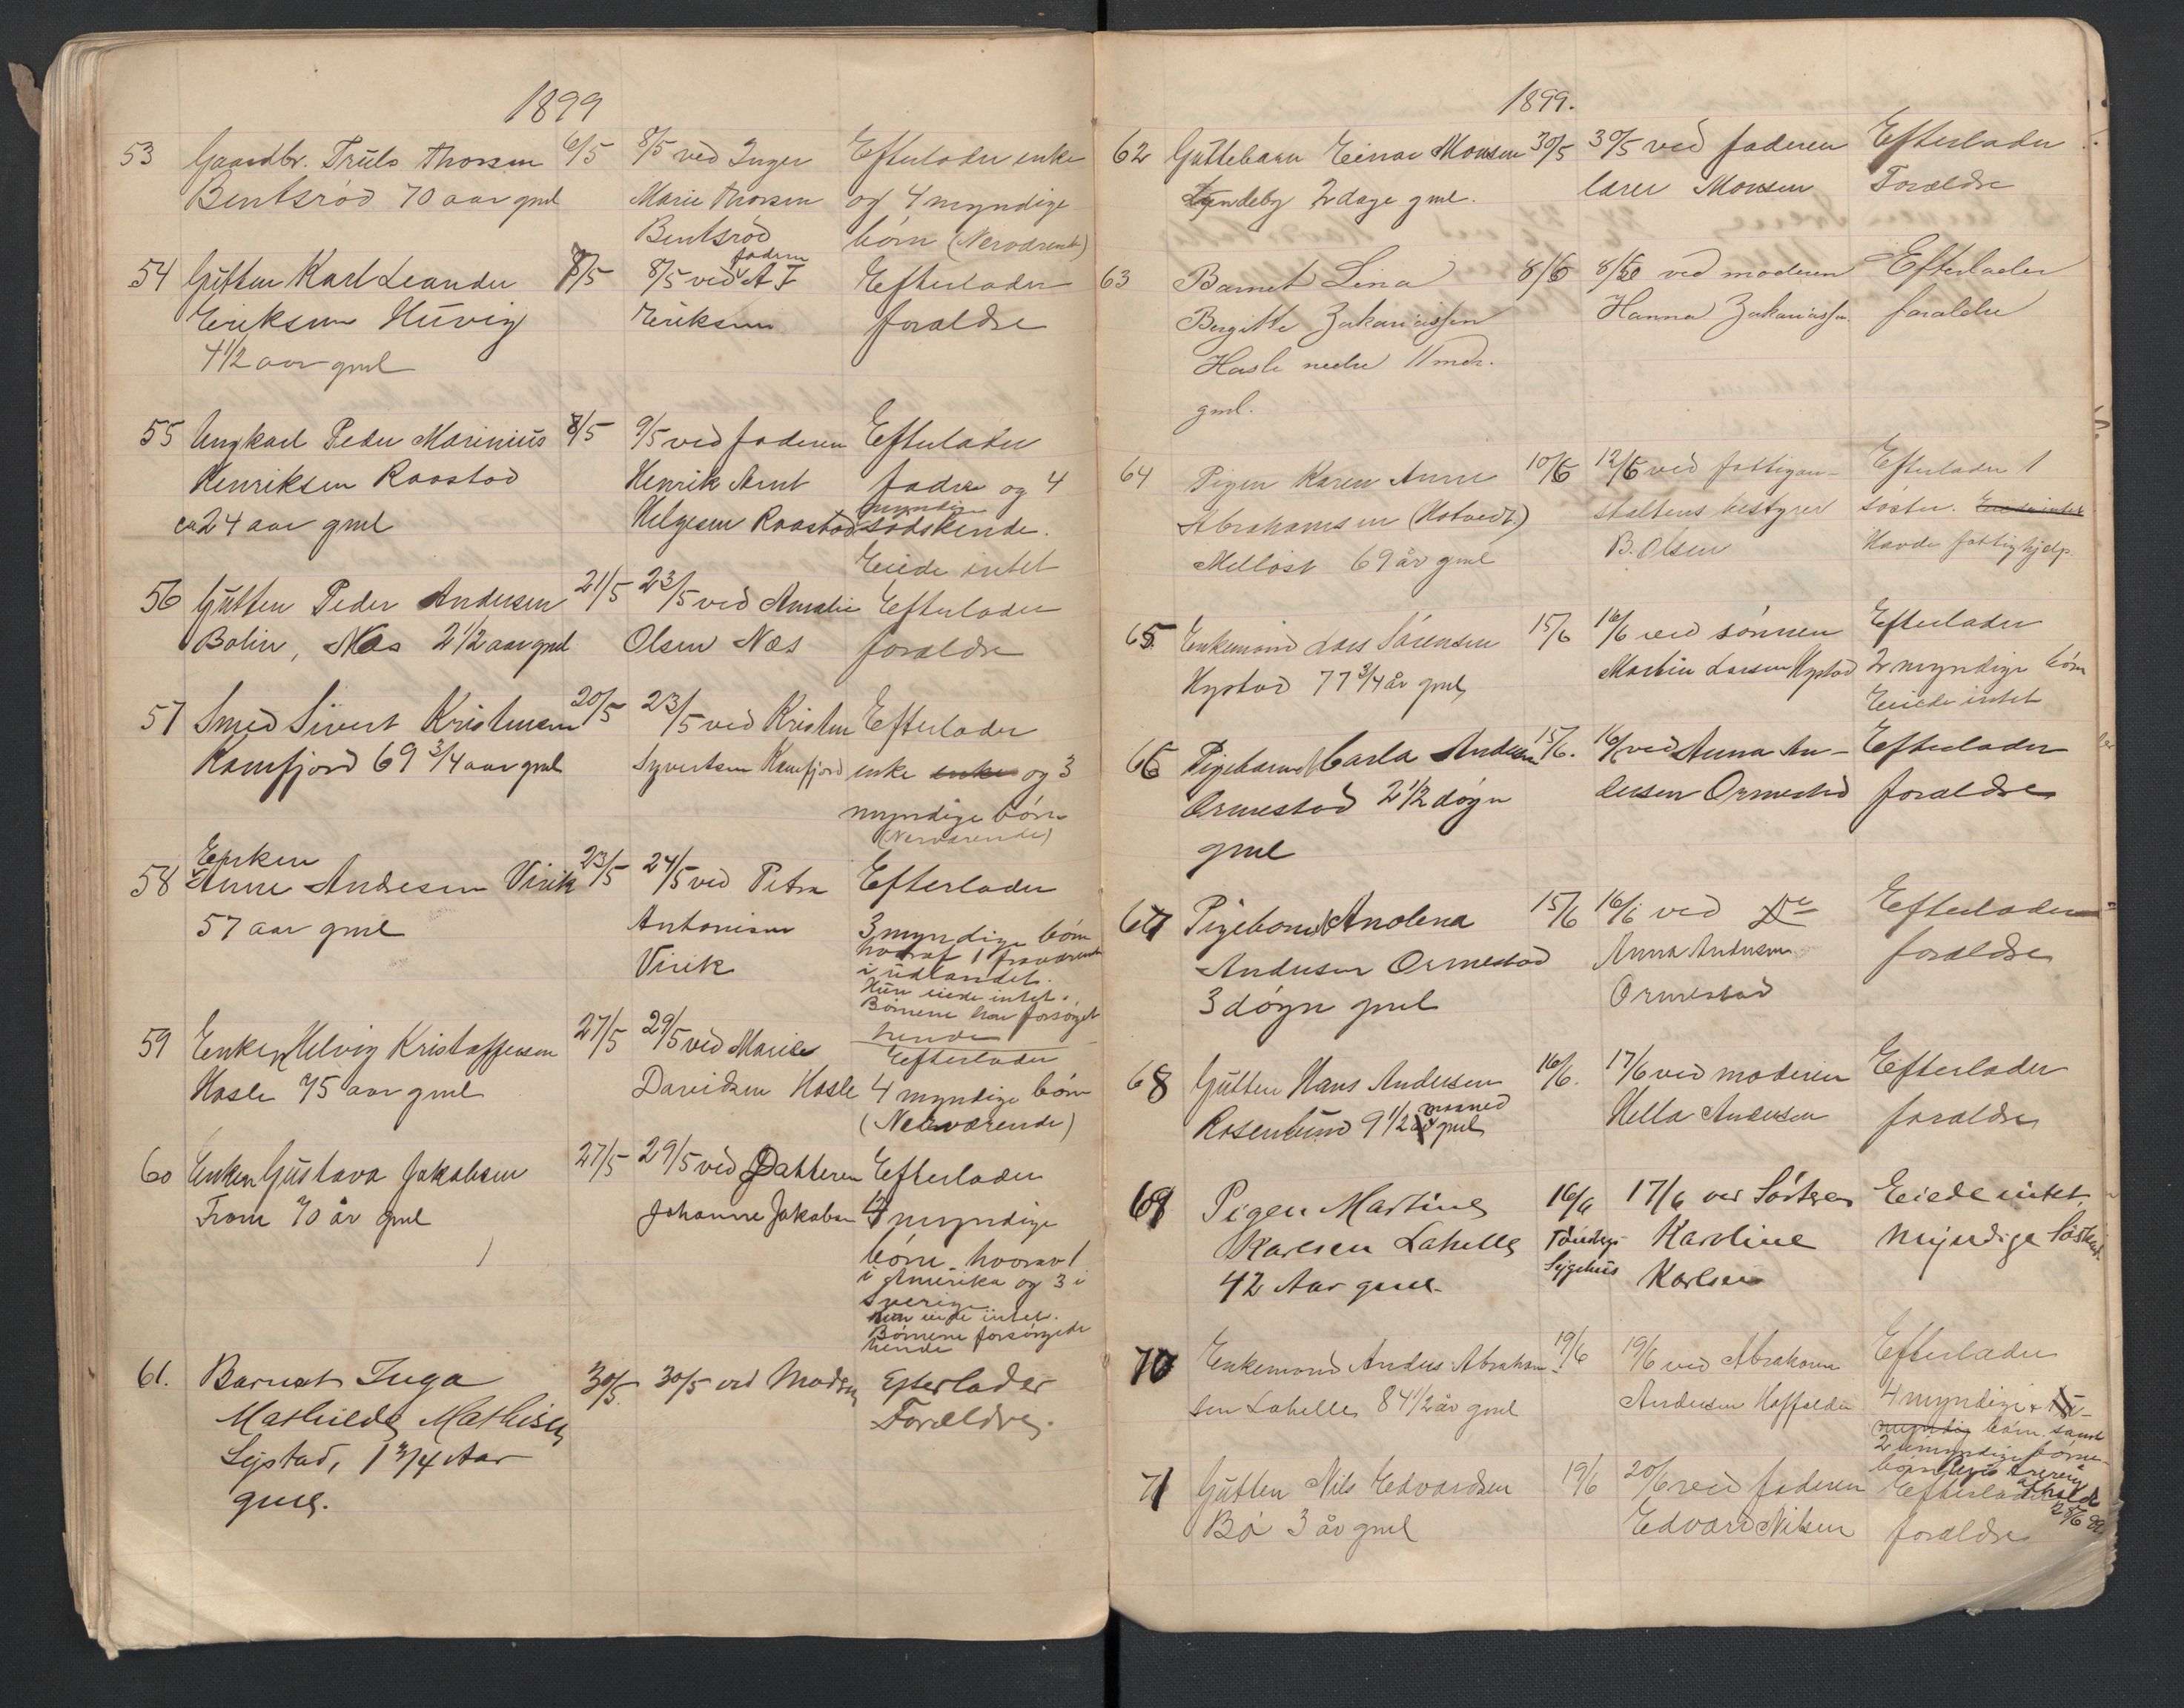 1899
53 Gaardbr. Truls Thorsen 6/5 8/5 ved Inger Efterlader enke
Bentsrød 70 aar gml Marie Thorsen og 4 myndige
Bentsrød børn (Nerværende)
faderen
54 Gutten Karl Leander 7/5 8/5 ved A T Efterlader
Eriksen Huvig Eriksen foraldre
4 1/2 aar gml
55 Ungkarl Peder Marinius 8/5 9/5 ved faderen Efterlader
Henriksen Raastad Henrik Arnt fader og 4
myndige
ca 24 aar gml Helgesen Raastad sødskende.
Eiede intet
56 Gutten Peder Andersen 21/5 23/5 ved Amalie Efterlader
Bolin, Næs 2 1/2 aar gml Olsen Næs foraldre
57 Smed Sivert Kristensen 20/5 23/5 ved Kristen Efterlader
Kamfjord 69 3/4 aar gml Syvertsen Kamfjord enke enke og 3
myndige børn
(Nerværende)
Enken
58 Anne Andersen Virik 23/5 24/5 ved Petra Efterlader
57 aar gml Antonisen 3 myndige børn
Virik hvoraf 1 fraværende
i udlandet.
Hun eiede intet.
Børnene har forsørget
hende
59 Enken Helvig Kristoffersen 27/5 29/5 ved Marie Efterlader
Hasle 75 aar gml Davidsen Hasle 4 myndige børn
(Nerværende)
60 Enken Gustava Jakobsen 27/5 29/5 ved Datteren Efterlader
From 70 år gml Johanne Jakobsen 4 myndige
børn hvorav 1
i Amerika og 3 i
Sverige
Hun eiede intet.
Børnene forsørgede
hende
61. Barnet Inga 30/5. 30/5 ved Modren Efterlader
Mathilde Mathisen Forældre.
Systad, 1 3/4 Aar
gml.
1899.
62 Guttebarn Einar Monsen 30/5 30/5 ved faderen Efterlader
Lyndeby 2 dage gml. lærer Monsen Forældre
63 Barnet Lina 8/6 8/6 ved moderen Efterlader
Bergitte Zakariassen Hanna Zakariassen. foraldre
Hasle nedre 11 mdr.
gml.
64 Pigen Karen Anne 10/6 12/6 ved fattigan- Efterlader 1
Abrahamsen (Hotvedt) staltens bestyrer søster. Eiede intet
Melløst 69 år gml B. Olsen Havde fattighjelp.
65. Enkemand Lars Sørensen 15/6 16/6 ved sønnen Efterlader
Hystad 77 3/4 år gml Martin Larsen Hystad 2 myndige børn
Eiede intet
66 Pigebarnet Carla Andersen 15/6. 16/6 ved Anna An- Efterlader
Ormestad 2 1/2 døgn dersen Ormestad foraldre
gml
67 Pigebarnet Anolena 15/6 16/6 ved Do Efterlader
Andersen Ormestad Anna Andersen foraldre
3 døgn gml Ormestad
68 Gutten Hans Andersen 16/6. 17/6 ved moderen Efterlader
maaned
Rosenlund 9 1/2 år gml Hella Andersen foraldre
69 Pigen Martine 16/6 17/6 ved Søsteren Eiede intet
Karlsen Lahelle Tønsbergs Karoline Myndige Søskend.
42 Aar gml. Sygehus Karlsen
70 Enkemand Anders Abraham- 19/6 19/6 ved Abraham Efterlader
sen Lahelle 84 1/2 år gml Andersen 4 myndige
myndig børn samt
2 umyndige børne
børn
71 Gutten Nils Edvardsen 19/6 20/6 ved faderen Efterlader
Bø 3 år gml Edvard Nilsen foraldre